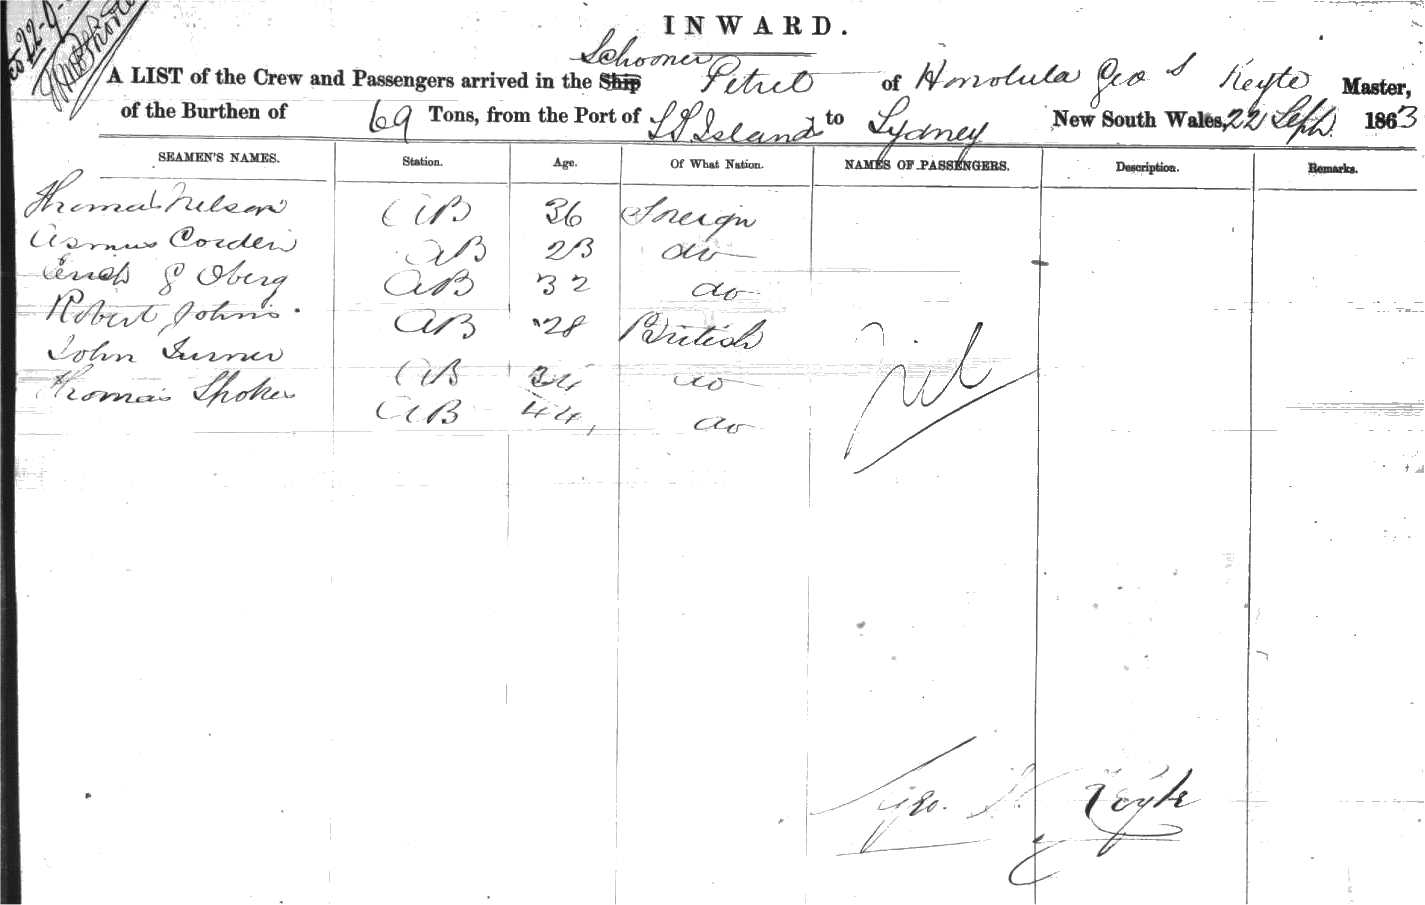 22-9-
INWARD.
Schooner
A LIST of the Crew and Passengers arrived in the Ship Petrel of Honolula Geo S Keyte Master,
of the Burthen of 69 Tons, from the Port of S S Island to Sydney New South Wales, 22 Sept. 1863
SEAMEN'S NAMES. Station. Age. Of What Nation. NAMES OF PASSENGERS. Description. Remarks.
Thomas Nelson AB 36 Foreign
Asmus Cordein AB 23 do
Erich G Oberg AB 32 do
Robert Johns. AB 28 British
John Turner AB 34 do
Thomas Shoker AB 44, do
Nil
Geo. S. Keyte